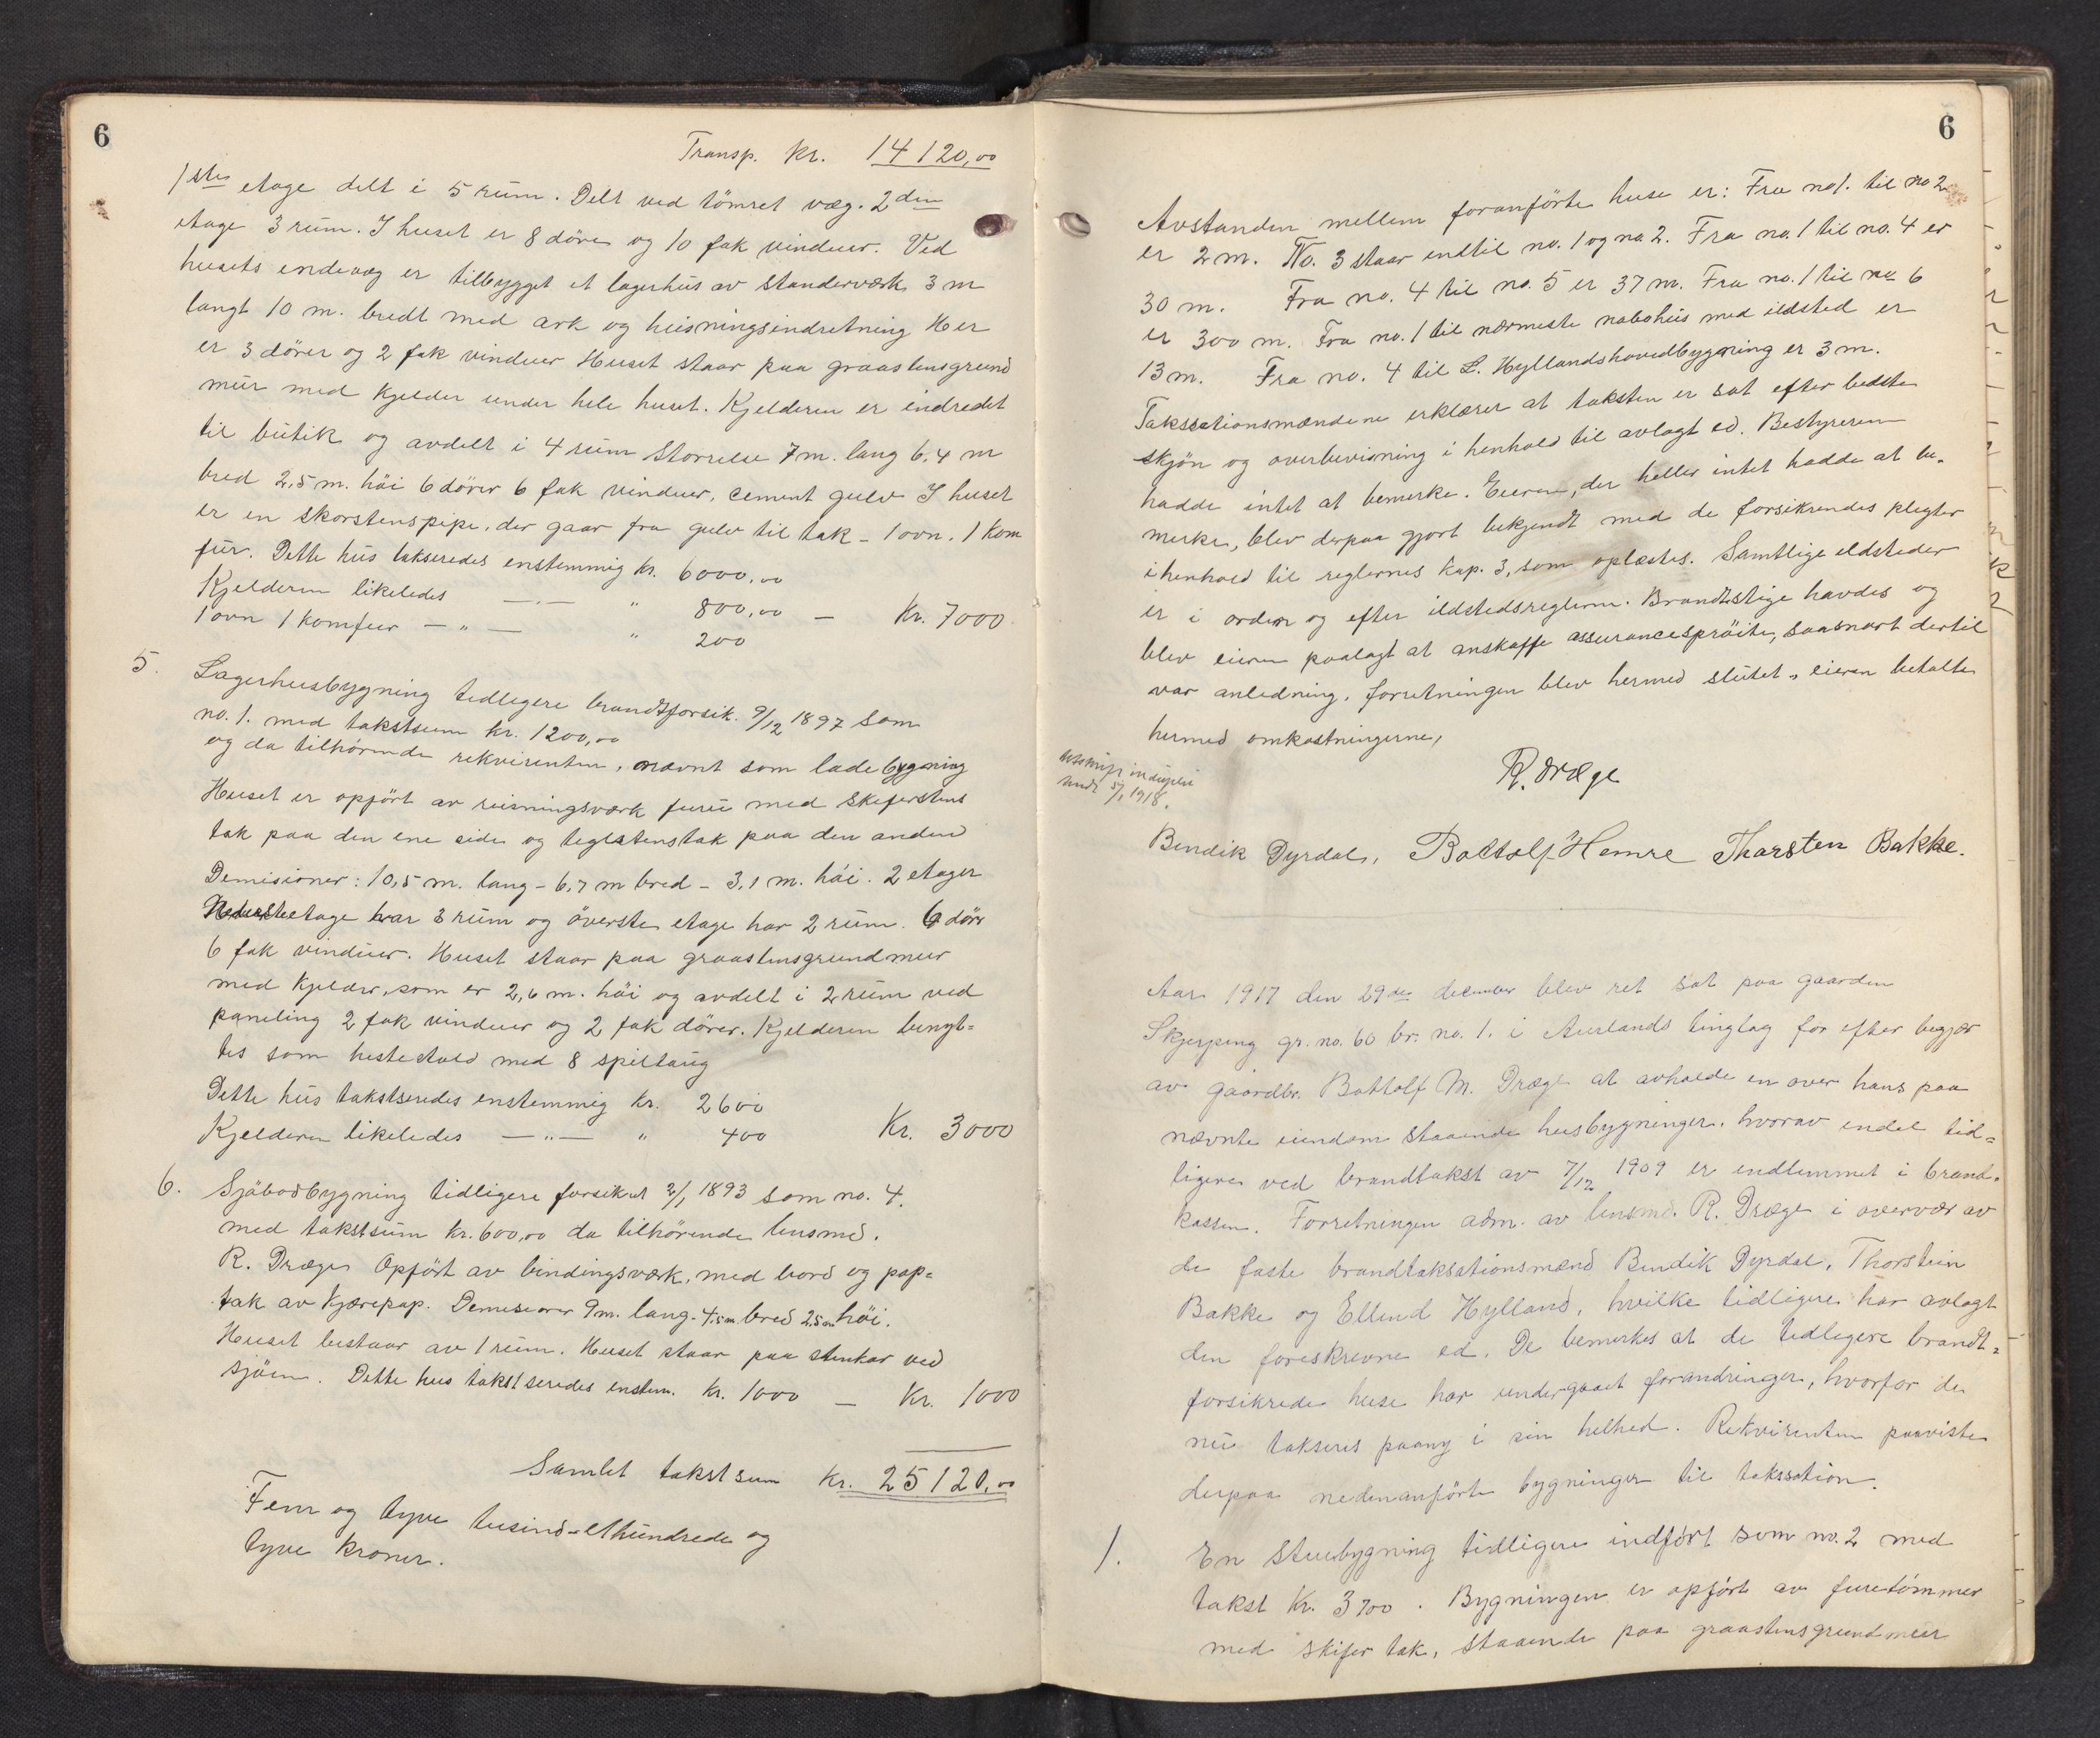 6
Transp. kr. 14120,00
1ste etage delt i 5 rum. Delt ved tömret væg. 2den
etage 3 rum. I huset er 8 döre og 10 fak vinduer. Ved
husets endevæg er tilbygget et lagerhus av standerværk 3 m
langt 10 m. bredt med ark og heisningsindretning Her
er 3 dörer og 2 fak vinduer Huset staar paa graastensgrund
mur med Kjelder under hele huset. Kjelderen er indredet
til butik og avdelt i 4 rum Storrelse 7 m. lang 6,4 m
bred 2,5 m. höi 6 dörer 6 fak vinduer, cement gulv I huset
er en skorstenspipe, der gaar fra gulv til tak - 1 ovn. 1 kom
fur. Dette hus takseredes enstemmig kr. 6000,00
Kjelderen likeledes — " — " 800,00 — Kr. 7000
1 ovn 1 komfur — " — " 200
5. Lagerhusbygning tidligere brandtforsik. 9/12 1897 som
no. 1. med takstsum kr. 1200,00
og da tilhörende rekvirenten, nævnt som ladebygning
Huset er opfört av reisningsværk furu med skeferstens
tak paa den ene side og teglstenstak paa den anden
Demisioner: 10,5 m. lang - 6,7 m bred - 3,1 m. höi. 2 etager
Nedersteetage har 3 rum og överste etage har 2 rum. 6 dörr
6 fak vinduer. Huset staar paa graastensgrundmur
med kjelder, som er 2,6 m. höi og avdelt i 2 rum ved
paneling 2 fak vinduer og 2 fak dörer. Kjelderen benyt=
tes som hestestald med 8 spiltaug
Dette hus takstseredes enstemmig kr. 2600
Kjelderen likeledes — " — " 400 Kr. 3000
6. Sjöbodbygning tidligere forsikret 2/1 1893 som no. 4.
med takstsum kr. 600,00 da tilhörende lensmd.
R. Dræge Opfört av bindingsværk, med bord og pap=
tak av tjærepap. Demisioner 9 m. lang - 4,5 m bred 2,5 m höi.
Huset bestaar av 1 rum. Huset staar paa stenkar ved
sjöen. Dette hus takstseredes enstem. kr. 1000 — Kr. 1000
Samlet takstsum kr. 25120,00
Fem og tyve tusind-ethundrede og
tyve kroner.
6
Avstanden mellem foranförte huse er: Fra no 1. til no 2
er 2 m. No. 3 staar indtil no. 1 og no 2. Fra no. 1 til no. 4 er
30 m. Fra no. 4 til no. 5 er 37 m. Fra no. 1 til no 6
er 300 m. Fra no. 1 til nærmeste nabohus med ildsted er
13 m. Fra no. 4 til L. Hyllands hovedbygning er 3 m.
Taksationsmændene erklærer at taksten er sat efter bedste
skjön og overbevisning i henhold til avlagt ed. Bestyreren
hadde intet at bemerke. Eieren, der heller intet hadde at be-
merke, blev derpaa gjort bekjendt med de forsikrendes plegter
i henhold til reglernes kap. 3, som oplæstes. Samtlige ildsteder
er i orden og efter ildstedsreglerne. Brandtstige havdes og
blev eieren paalagt at anskaffe assurancespröite, saasnart dertil
var anledning. Forretningen blev hermed sluttet, eieren betalte
hermed omkostningerne,
R. Dræge
sendt 5/1 1918.
Bendik Dyrdal, Bottolf Hemre Thorsten Bakke.
Aar 1917 den 29de december blev ret sat paa gaarden
Skjerping gr. no. 60 br. no. 1. i Aurlands tinglag for efter begjær
av gaardbr. Bottolf M. Dræge at avholde en over hans paa
nævnte eiendom staaende husbygninger, hvorav endel tid=
ligere ved brandtakst av 7/12 1909 er indlemmet i brand-
kassen. Forretningen adm. av lensmd. R. Dræge i overvær av
de faste brandtaksationsmænd Bendik Dyrdal, Thorstein
Bakke og Ellend Hylland, hvilke tidligere har avlagt
den foreskrevne ed. De bemerkes at de tidligere brandt=
forsikrede huse har undergaaet forandringer, hvorfor de
nu takseres paany i sin helhed. Rekvirenten paaviste
derpaa nedenanförte bygninger til taksation.
1. En Stuebygning tidligere indfört som no. 2 med
takst kr. 3700. Bygningen er opfört av furutömmer
med skifer tak, staaende paa graastensgrundmur